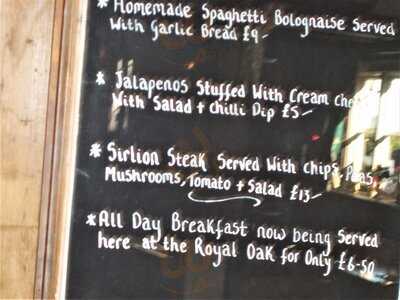 * Homemade Spaghetti Bolognaise Served
With Garlic Bread £9-
* Jalapenos Stuffed With Cream
With Salad + Chilli Dip £5-
* Sirlion Steak Served With Chips, Peas
Mushrooms, Tomato + Salad £13-
* All Day Breakfast now being Served
here at the Royal Oak for Only £6-50